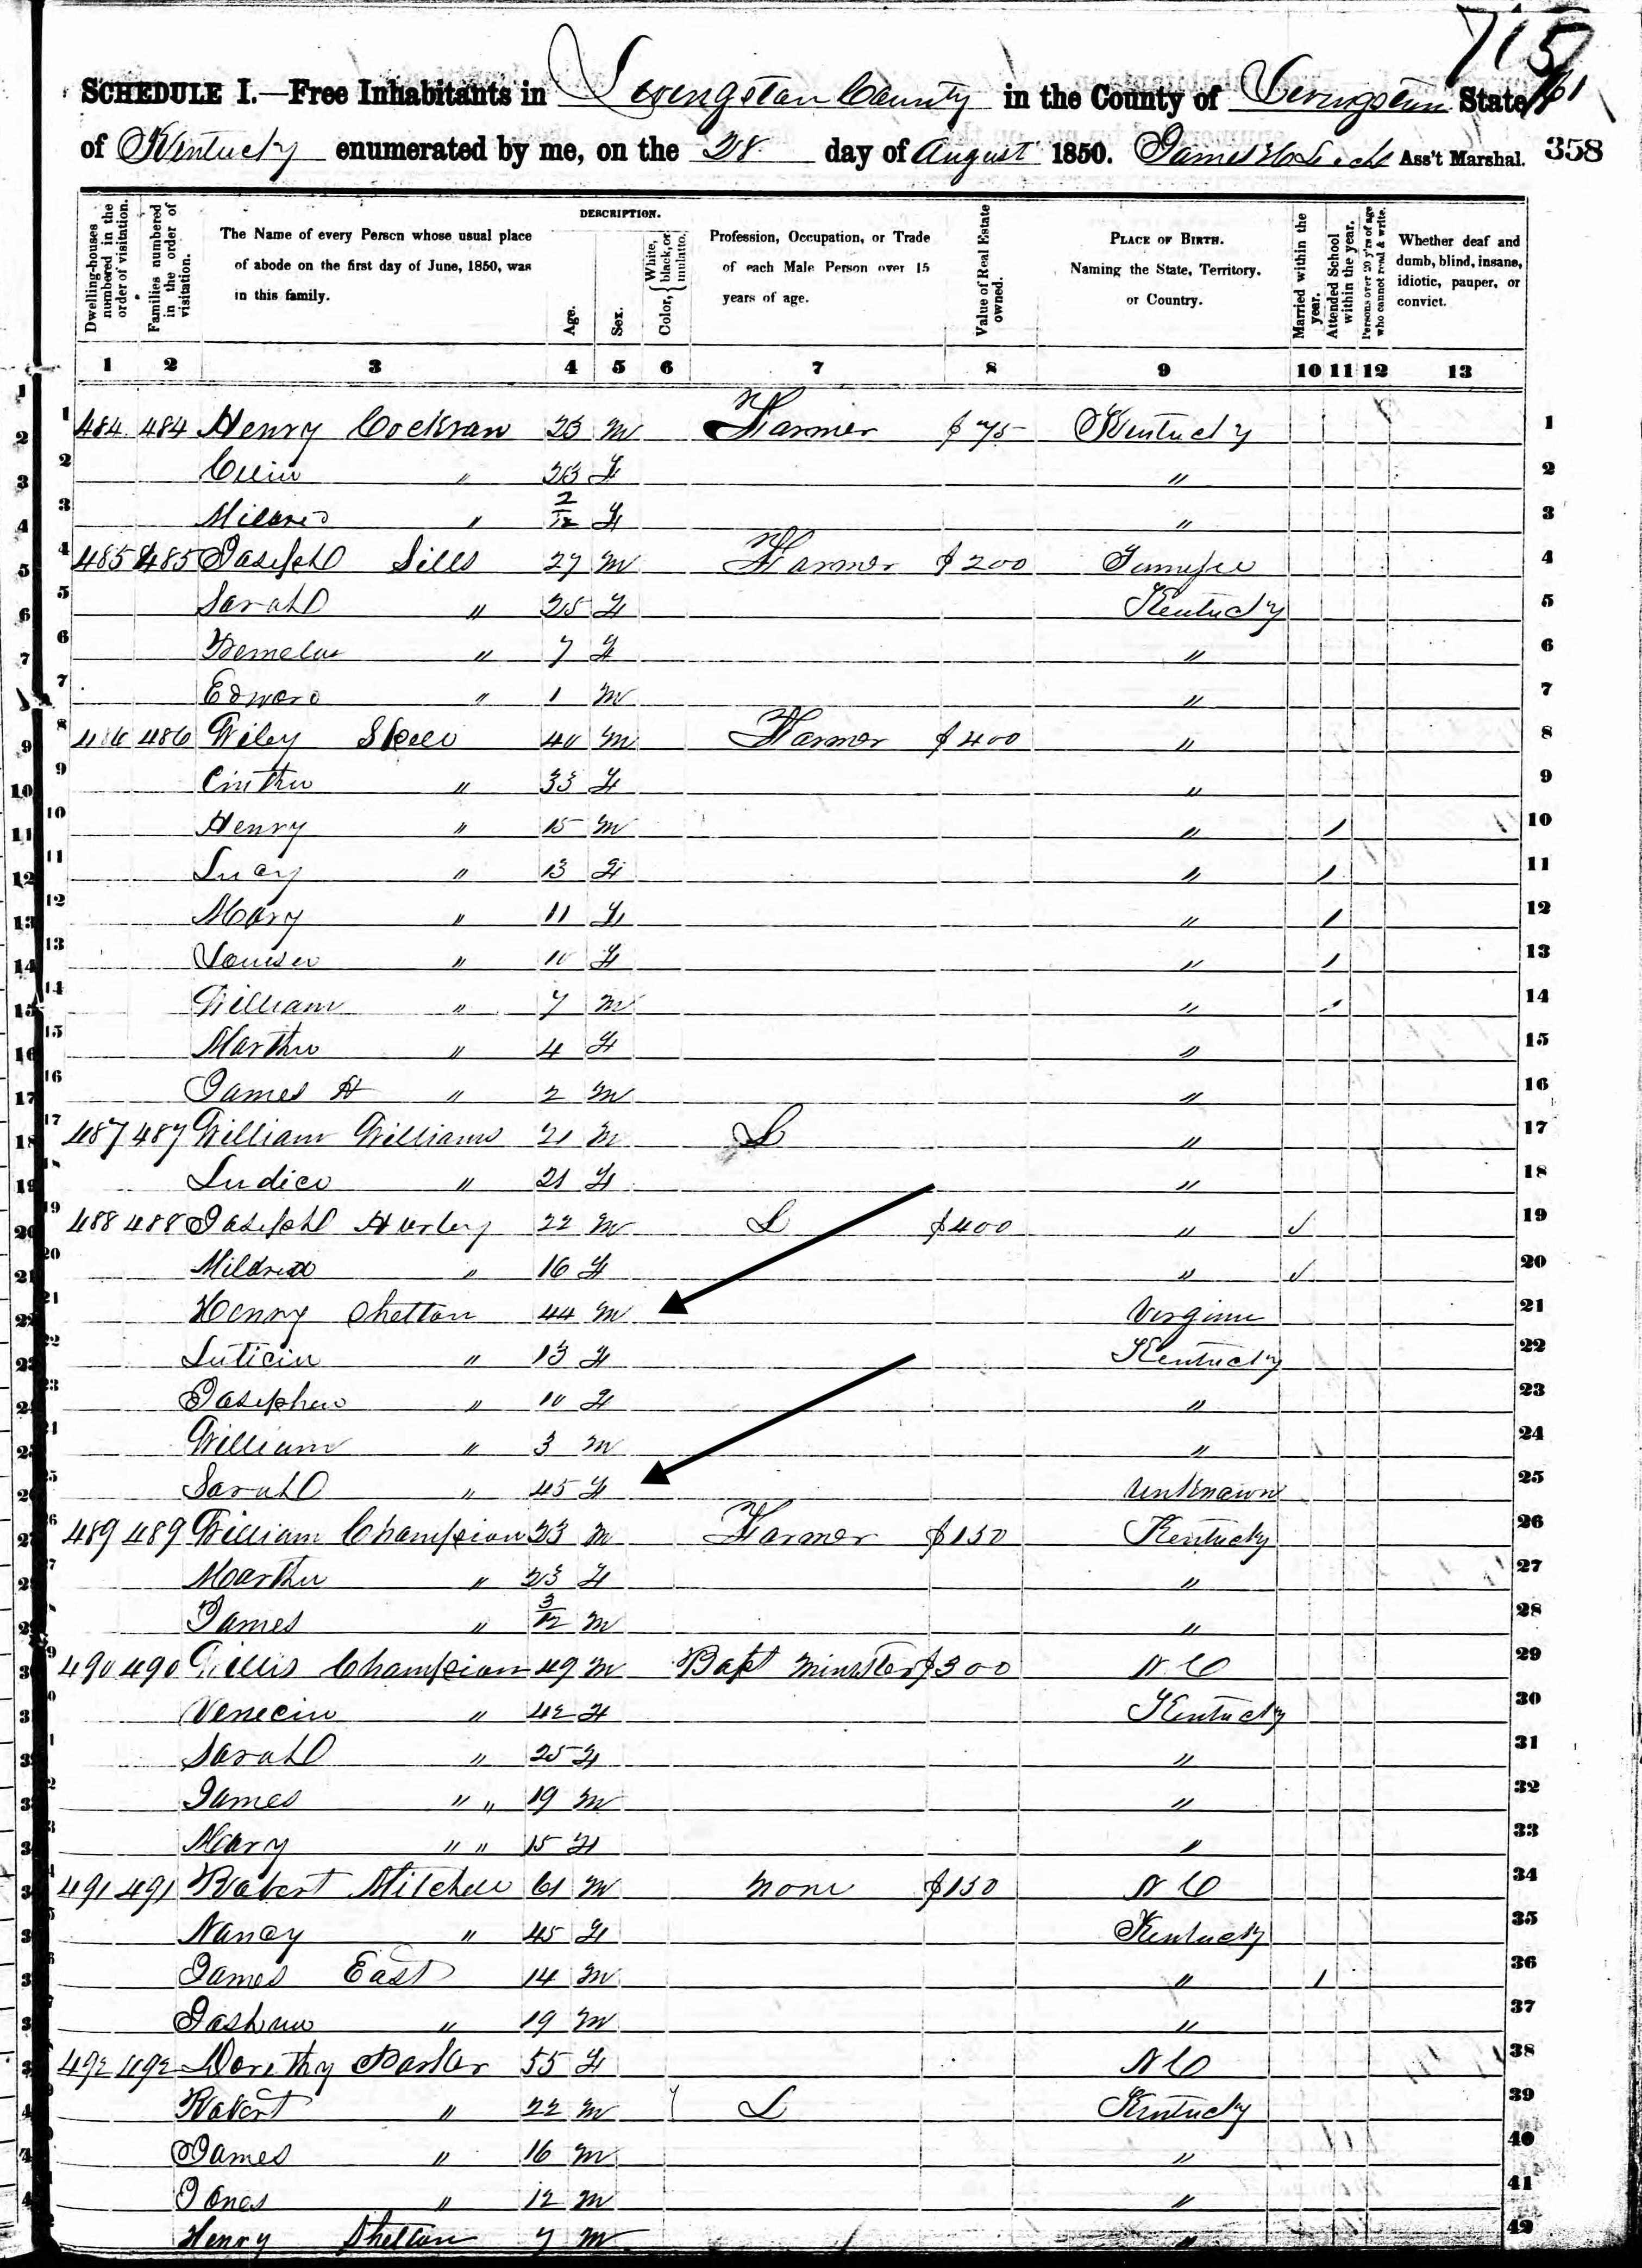 715
SCHEDULE I.—Free Inhabitants in Livingston County in the County of Livingston State
of Kentucky enumerated by me, on the 28 day of August 1850. Ass't Marshal. 358
Dwelling-houses numbered in the order of visitation.
Families numbered in the order of visitation.
The Name of every Person whose usual place of abode on the first day of June, 1850, was in this family.
DESCRIPTION.
Age.
Sex.
Color, { White, black, or mulatto.
Profession, Occupation, or Trade of each Male Person over 15 years of age.
Value of Real Estate owned.
PLACE OF BIRTH. Naming the State, Territory, or Country.
Married within the year.
Attended School within the year.
Persons over 20 y'rs of age who cannot read & write.
Whether deaf and dumb, blind, insane, idiotic, pauper, or convict.
1 2 3 4 5 6 7 8 9 10 11 12 13
1 484 484 Henry Cockran 23 M Farmer $75 Kentucky 1
2 " 23 F " 2
3 Mildred " 2/12 F " 3
4 485 485 Joseph Sills 27 M Farmer $200 4
5 Sarah " 25 F Kentucky 5
6 " 7 F " 6
7 Edward " 1 M " 7
8 486 486 Wiley 40 M Farmer $400 " 8
9 Cintha " 33 F " 9
10 Henry " 15 M " / 10
11 Lucy " 13 F " / 11
12 Mary " 11 F " / 12
13 Louisa " 10 F " / 13
14 William " 7 M " / 14
15 Martha " 4 F " 15
16 James H " 2 M " 16
17 487 487 William Williams 21 M L " 17
18 Ludica " 21 F " 18
19 488 488 Joseph Hurley 22 M L $400 " ✓ 19
20 Mildred " 16 F " ✓ 20
21 Henry Shelton 44 M Virginia 21
22 Leticia " 13 F Kentucky 22
23 Josephen " 10 F " 23
24 William " 3 M " 24
25 Sarah " 45 F Unknown 25
26 489 489 William Champion 23 M Farmer $150 Kentucky 26
27 Martha " 23 F " 27
28 James " 3/12 M " 28
29 490 490 Willis Champion 49 M Bapt Minister $300 N C 29
30 Venecia " 42 F Kentucky 30
31 Sarah " 25 F " 31
32 James " " 19 M " 32
33 Mary " " 15 F " 33
34 491 491 Robert Mitchell 61 M none $150 N C 34
35 Nancy " 45 F Kentucky 35
36 James East 14 M " / 36
37 Joshua " 19 M " 37
38 492 492 Dorithy 55 F N C 38
39 Robert " 22 M L Kentucky 39
40 James " 16 M " 40
41 Jones " 12 M " 41
42 Henry Shelton 7 M " 42